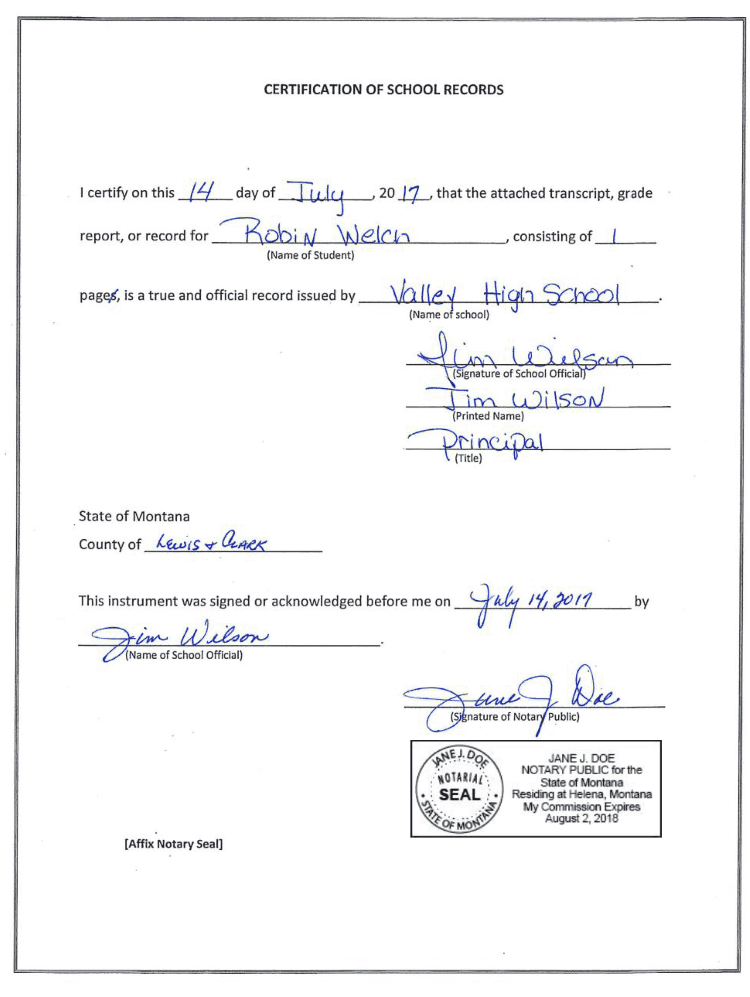 CERTIFICATION OF SCHOOL RECORDS
I certify on this 14 day of July, 20 17, that the attached transcript, grade
report, or record for Robin Welch, consisting of 1
(Name of Student)
pages, is a true and official record issued by Valley High School.
(Name of school)
Jim Wilson
(Signature of School Official)
Jim Wilson
(Printed Name)
Principal
(Title)
State of Montana
County of Lewis & Clark
This instrument was signed or acknowledged before me on July 14, 2017 by
Jim Wilson.
(Name of School Official)
Jane J Doe
(Signature of Notary Public)
JANE J. DOE
NOTARIAL
SEAL
STATE OF MONTANA
JANE J. DOE
NOTARY PUBLIC for the
State of Montana
Residing at Helena, Montana
My Commission Expires
August 2, 2018
[Affix Notary Seal]